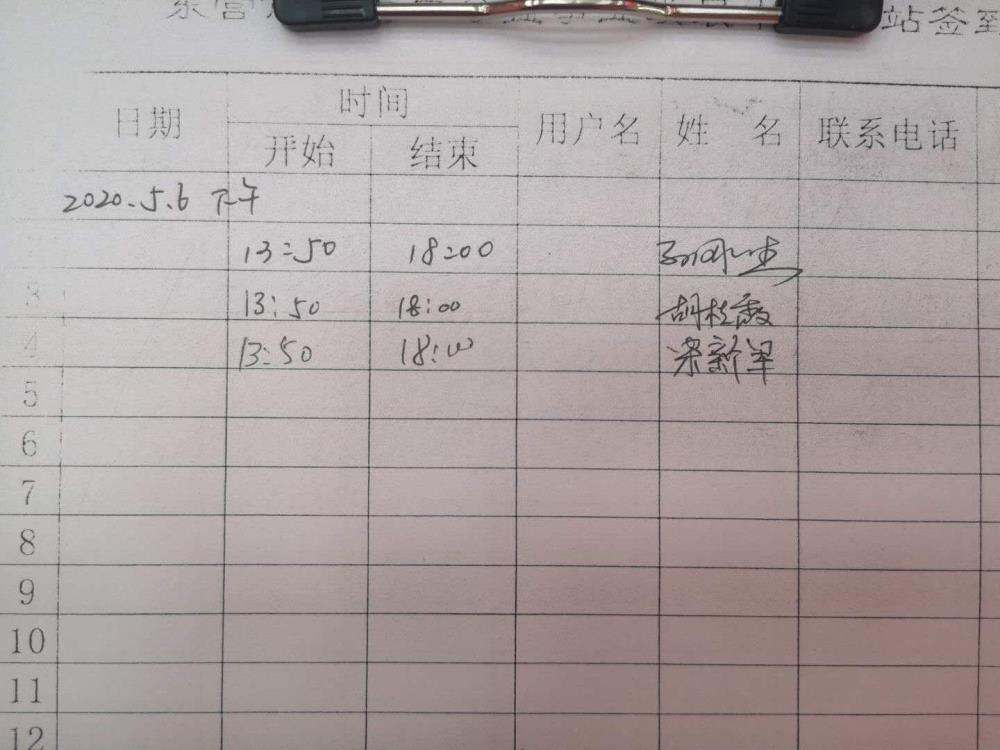 站签到
日期 时间 用户名 姓 名 联系电话
开始 结束
2020.5.6 下午
13:50 18:00
3 13:50 18:00 胡枝霞
4 13:50 18:00 梁新军
5
6
7
8
9
10
11
12